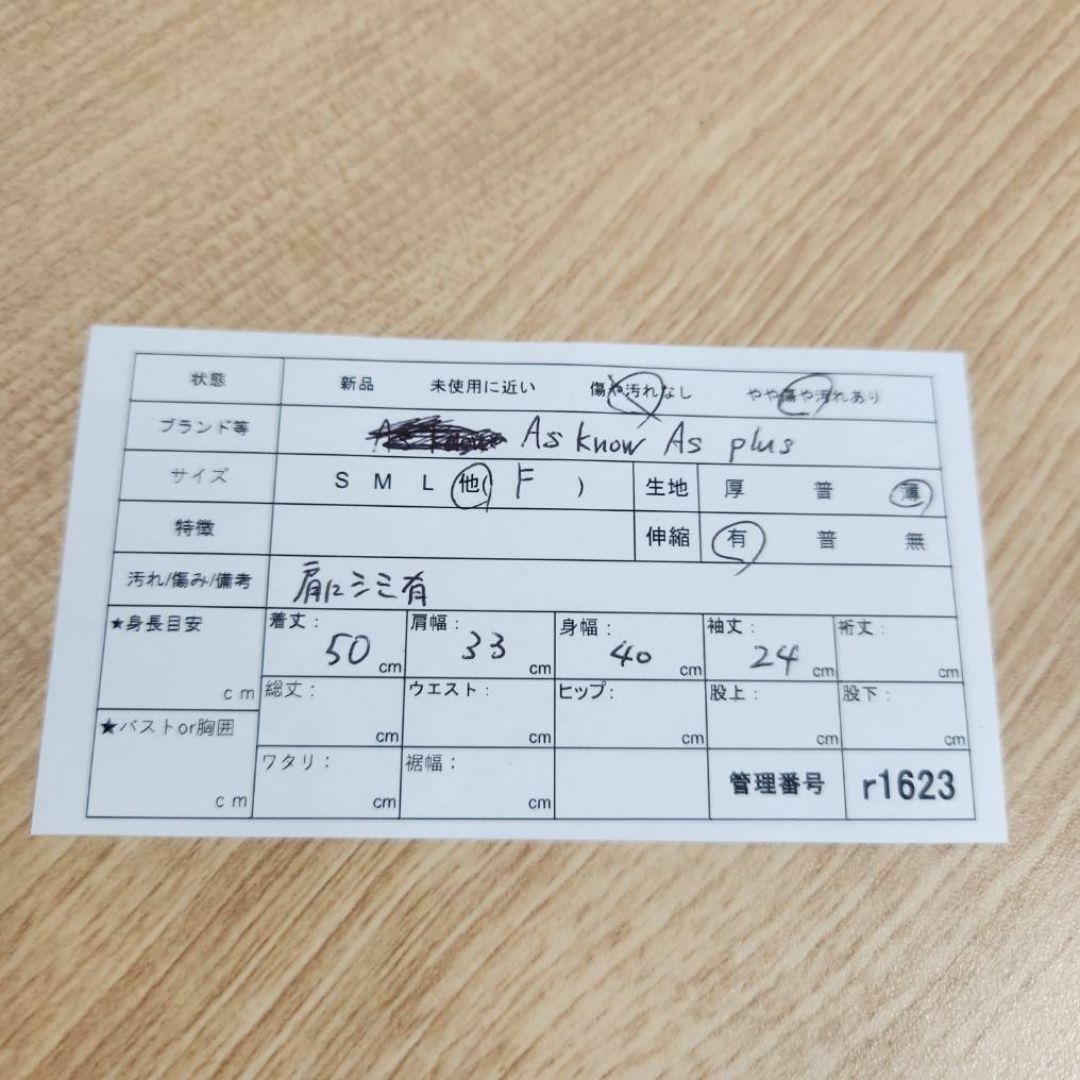 状態 新品 未使用に近い 傷や汚れなし やや傷や汚れあり
ブランド等 As know As plus
サイズ S M L 他( F ) 生地 厚 普 薄
特徴 伸縮 有 普 無
汚れ/傷み/備考 肩にシミ有
★身長目安 cm 着丈: 50 cm 肩幅: 33 cm 身幅: 40 cm 袖丈: 24 cm 裄丈: cm
総丈: cm ウエスト: cm ヒップ: cm 股上: cm 股下: cm
★バストor胸囲 cm ワタリ: cm 裾幅: cm 管理番号 r1623